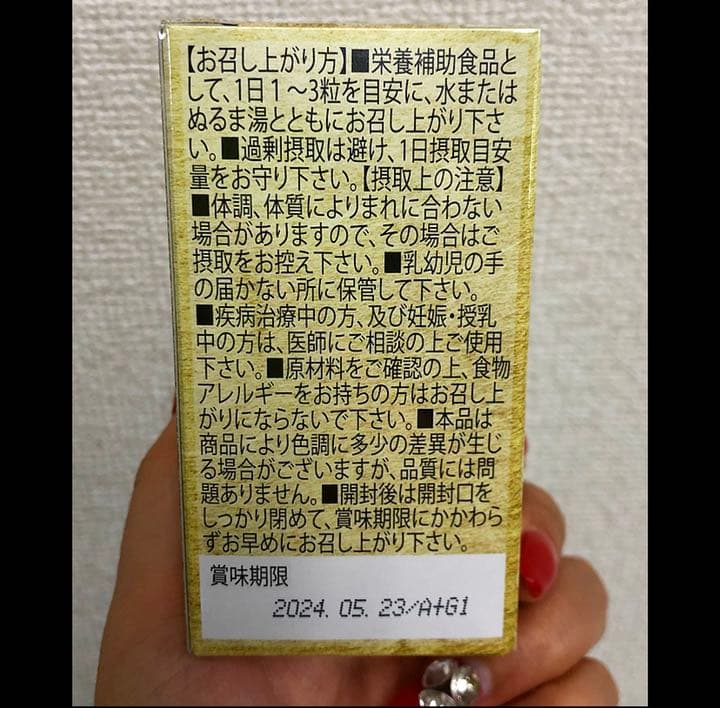 【お召し上がり方】■栄養補助食品と
して、1日1～3粒を目安に、水または
ぬるま湯とともにお召し上がり下さ
い。■過剰摂取は避け、1日摂取目安
量をお守り下さい。【摂取上の注意】
■体調、体質によりまれに合わない
場合がありますので、その場合はご
摂取をお控え下さい。■乳幼児の手
の届かない所に保管して下さい。
■疾病治療中の方、及び妊娠・授乳
中の方は、医師にご相談の上ご使用
下さい。■原材料をご確認の上、食物
アレルギーをお持ちの方はお召し上
がりにならないで下さい。■本品は
商品により色調に多少の差異が生じ
る場合がございますが、品質には問
題ありません。■開封後は開封口を
しっかり閉めて、賞味期限にかかわら
ずお早めにお召し上がり下さい。
賞味期限
2024.05.23/A+G1